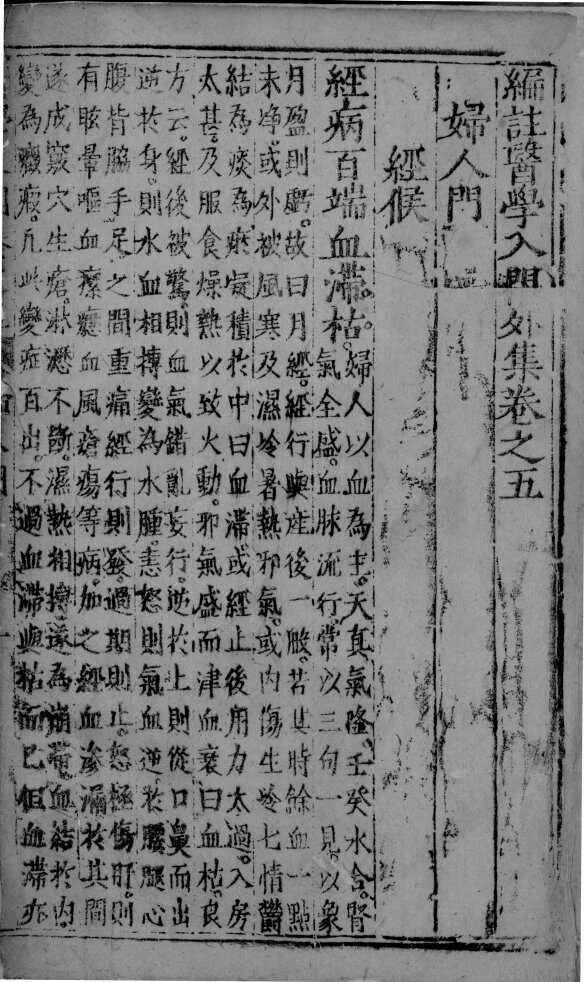 編註醫學入門外集卷之五
婦人門
經候
經病百端血滯枯。婦人以血為主。天真氣降。壬癸水合。腎
氣全盛。血脉流行。常以三旬一見。以象
月盈則虧。故曰月經。經行與產後一般。若其時餘血一點
未净。或外被風寒及濕冷暑熱邪氣。或内傷生冷七情鬱
結為痰為瘀。凝積於中曰血滯。或經止後用力太過。入房
太甚。及服食燥熱以致火動。邪氣盛而津血衰。曰血枯。良
方云。經後被驚。則血氣錯亂妄行。逆於上則從口鼻而出
逆於身。則水血相搏。變為水腫。恚怒則氣血逆。於腰腿心
腹背脇手足之間重痛。經行則發。過期則止。怒極傷肝。則
有眩暈嘔血瘰癧血風瘡瘍等病。加之經血滲漏於其間
遂成竅穴生瘡。淋瀝不斷。濕熱相搏。遂為崩帶。血結於内。
變為癥瘕。凡此變症百出。不過血滯與枯而已。但血滯亦